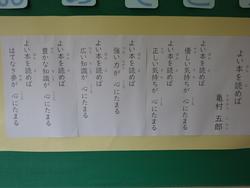 よい本を読めば
亀村 五郎
よい本を読めば
優しい気持ちが 心にたまる
よい本を読めば
正しい気持ちが 心にたまる
よい本を読めば
強い力が 心にたまる
よい本を読めば
広い知識が 心にたまる
よい本を読めば
豊かな知識が 心にたまる
よい本を読めば
はてなき夢が 心にたまる